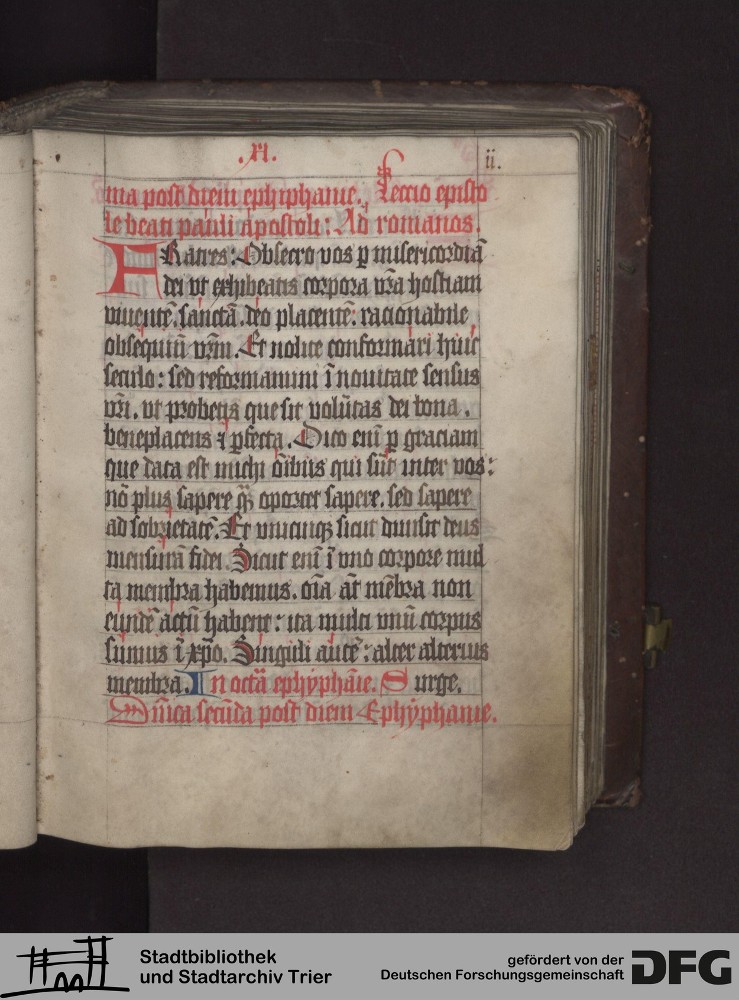 .xi. ii.
ma post diem ephiphanie. Leccio episto
le beati pauli apostoli: Ad romanos.
FRatres: Obsecro vos p̲ misericordiā
dei vt exhibeatis corpora vr̄a hostiam
viuentē. sanctā. deo placentē: racionabile
obsequiū vr̄m. Et nolite conformari huic
seculo: sed reformamini ī nouitate sensus
vr̄i. vt probetis que sit volūtas dei bona.
beneplacens ⁊ p̲fecta. Dico enī p̲ graciam
que data est michi oībus qui sūt inter vos:
nō plus sapere qͣ̄ꝫ oportet sapere. sed sapere
ad sobrietatē. Et vnicuiqꝫ sicut diuisit deus
mensurā fidei. Sicut enī ī vno corpore mul
ta membra habemus. oīa aūt mēbra non
eundē actū habent: ita multi vnū corpus
sumus ī xpō. Singuli autē: alter alterius
membra. In octā ephyphāie. Surge.
Dn̄ica secūda post diem Ephyphanie.
Stadtbibliothek
und Stadtarchiv Trier
gefördert von der
Deutschen Forschungsgemeinschaft
DFG